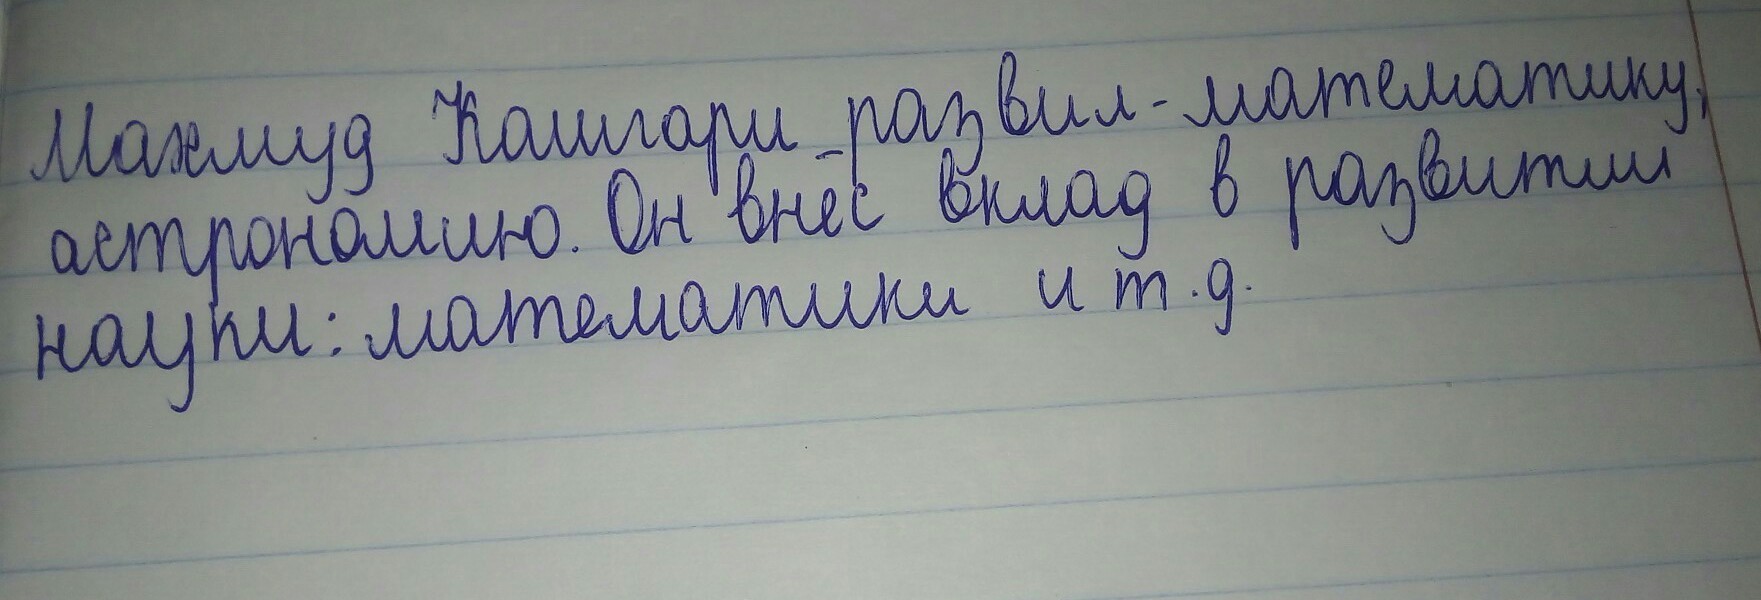 Махмуд Кашгари - развил - математику,
астрономию. Он внес вклад в развитии
науки: математики и т.д.